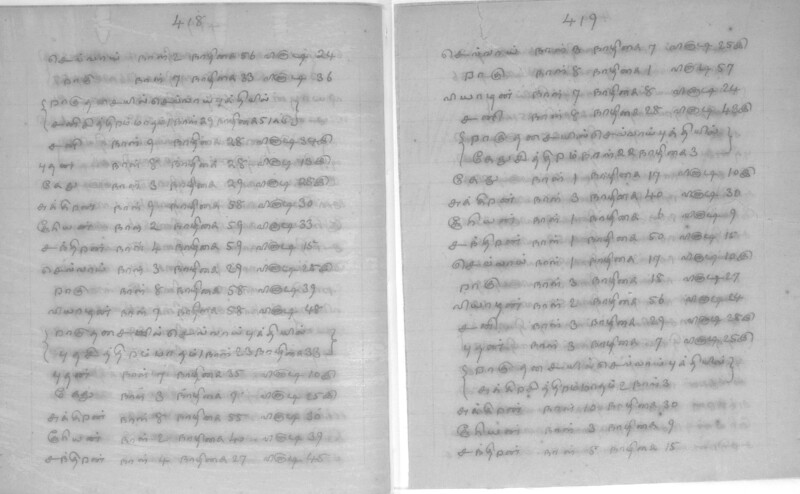 418
செவ்வாய் நாள் 2 நாழிகை 56 விகடி 24
ராகு நாள் 7 நாழிகை 33 விகடி 36
ராகு தசையில் செவ்வாய் புத்தியில்
சனி நாள் 9 நாழிகை 28 விகடி
புதன் நாள் 8 நாழிகை 28 விகடி
கேது நாள் 3 நாழிகை 29 விகடி
சுக்கிரன் நாள் 9 நாழிகை 58 விகடி 30
சூரியன் நாள் 2 நாழிகை 59 விகடி 33
சந்திரன் நாள் 4 நாழிகை 59 விகடி 15
செவ்வாய் நாள் 3 நாழிகை 29 விகடி
ராகு நாள் 8 நாழிகை 58 விகடி 39
வியாழன் நாள் 7 நாழிகை 58 விகடி 48
ராகு தசையில் செவ்வாய் புத்தியில்
நாள் 23 நாழிகை 33
புதன் நாள் 7 நாழிகை 35 விகடி
கேது நாள் 3 நாழிகை விகடி
சுக்கிரன் நாள் 8 நாழிகை 55 விகடி 30
சூரியன் நாள் 2 நாழிகை 40 விகடி 39
சந்திரன் நாள் 4 நாழிகை 27 விகடி 45
419
செவ்வாய் நாள் 3 நாழிகை 7 விகடி
ராகு நாள் 8 நாழிகை 1 விகடி 57
வியாழன் நாள் 7 நாழிகை 8 விகடி 24
சனி நாள் 8 நாழிகை 28 விகடி
ராகு தசையில் செவ்வாய் புத்தியில்
நாள் 22 நாழிகை 3
கேது நாள் 1 நாழிகை 17 விகடி
சுக்கிரன் நாள் 3 நாழிகை 40 விகடி 30
சூரியன் நாள் 1 நாழிகை 6 விகடி 9
சந்திரன் நாள் 1 நாழிகை 50 விகடி 15
செவ்வாய் நாள் 1 நாழிகை 17 விகடி
ராகு நாள் 3 நாழிகை 18 விகடி 27
வியாழன் நாள் 2 நாழிகை 56 விகடி 24
சனி நாள் 3 நாழிகை 29 விகடி
புதன் நாள் 3 நாழிகை 7 விகடி
ராகு தசையில் செவ்வாய் புத்தியில்
சுக்கிரன் நாள் 10 நாழிகை 30
சூரியன் நாள் 3 நாழிகை 9
சந்திரன் நாள் 5 நாழிகை 15